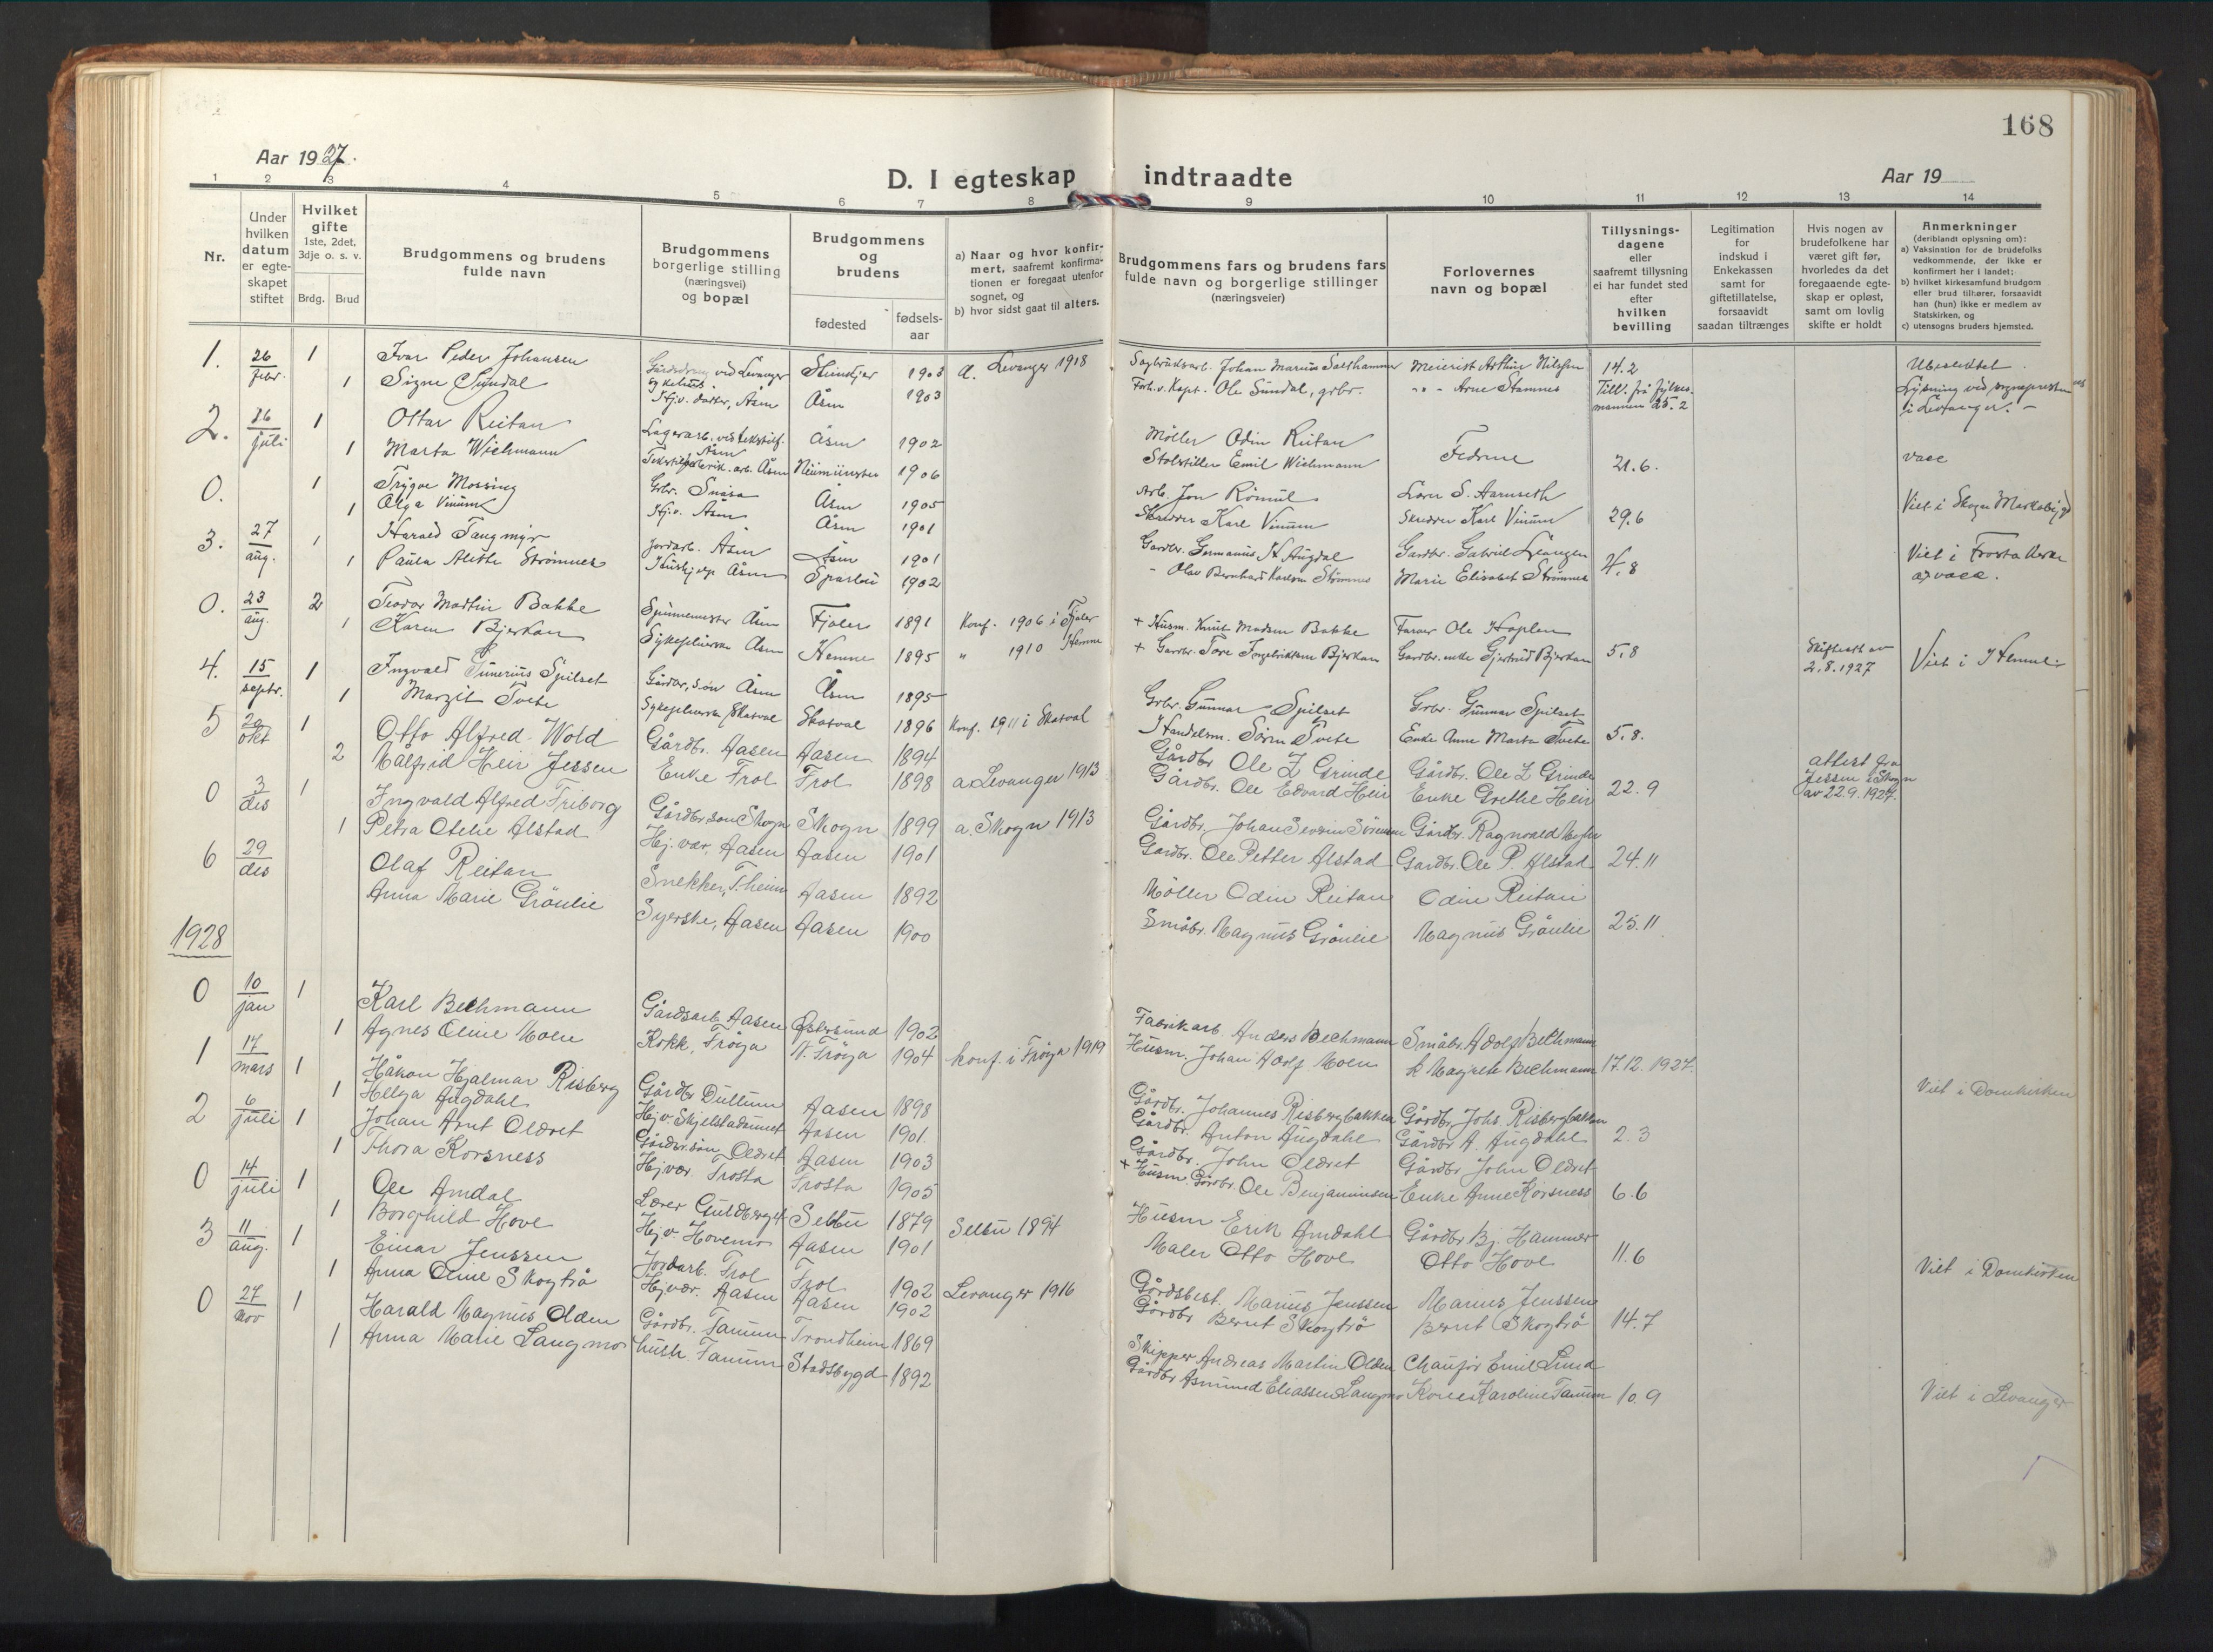 168
Aar 1927.
D. I egteskap indtraadte
Aar 19
1 2 3 4 5 6 7 8 9 10 11 12 13 14
Nr.
Under hvilken datum er egteskapet stiftet
Hvilket gifte 1ste, 2det, 3dje o. s. v.
Brdg. Brud
Brudgommens og brudens fulde navn
Brudgommens borgerlige stilling (næringsvei) og bopæl
Brudgommens og brudens
fødested
fødsels-aar
a) Naar og hvor konfirmert, saafremt konfirmationen er foregaat utenfor sognet, og
b) hvor sidst gaat til alters.
Brudgommens fars og brudens fars fulde navn og borgerlige stillinger (næringsveier)
Forlovernes navn og bopæl
Tillysningsdagene eller saafremt tillysning ei har fundet sted efter hvilken bevilling
Legitimation for indskud i Enkekassen samt for giftetillatelse, forsaavidt saadan tiltrænges
Hvis nogen av brudefolkene har været gift før, hvorledes da det foregaaende egteskap er opløst, samt om lovlig skifte er holdt
Anmerkninger (deriblandt oplysning om):
a) Vaksination for de brudefolks vedkommende, der ikke er konfirmert her i landet;
b) hvilket kirkesamfund brudgom eller brud tilhører, forsaavidt han (hun) ikke er medlem av Statskirken, og
c) utensogns bruders hjemsted.
1. 26 febr. 1 Ivar Peder Johansen Steinkjer 1903 a. Levanger 1918 Johan Marius Salthammer Meierist Arthur Nilssen 14.2
1 Signe Sundal Hj.v. datter, Åsen Åsen 1903 Ole Sundal, grbr. Arne Stamnes Till. frå fylkesmannen 25.2 Lysning ved sognepresten i Levanger.
2. 26 juli 1 Ottar Reitan Lagerarb. ved tekstilf. Åsen Åsen 1902 Møller Odin Reitan Fedrene
1 Marta Wichmann Tekstilfabrik. arb. Åsen Neumünster 1906 Emil Wichmann 21.6. vacc
0. 1 Trygve Mossing Grbr. Snåsa Åsen 1905 Arb. Jon Römül Lærer S. Aarnseth
1 Olga Vinum Hj.v. Åsen Åsen 1901 Skredder Karl Vinum Skredder Karl Vinum 29.6 Viet i Skogn Markabygd
3. 27 aug. 1 Harald Tangmyr Jordarb. Åsen Åsen 1901 Gardbr. Germanus H Augdal Gardbr. Gabriel Levangen
1 Paula Alethe Strømnes Hushjelp Åsen Sparbu 1902 Olav Bernhard Karlsen Strømnes Marie Elisabet Strømnes 4.8 Viet i Frosta
0. 23 aug. 2 Teodor Martin Bakke Spinnemester Åsen Fjaler 1891 Konf. 1906 i Fjaler + Husm. Knut Madsen Bakke Farver Ole Hoplen
1 Karen Bjerkan Sykepleierske Åsen Hemne 1895 " 1910 Hemne + Gardbr. Tore Ingebriktsen Bjerkan Gardbr. enke Gjertrud Bjerkan 5.8 Skifteatt av 2.8.1927 Viet i Hemne
4. 15 septr. 1 Ingvald Sunerius Spilset Gårdbr. søn Åsen Åsen 1895 Grbr. Gunnar Spilset Grbr. Gunnar Spilset
1 Margit Tvete Sykepleierske Skatval Skatval 1896 Konf. 1911 i Skatval Handelsm. Søren Tvete Enke Anne Marta Tvete 5.8.
5 20 okt 1 Otto Alfred Wold Gårdbr. Aasen Aasen 1894 Gårdbr Ole Z Grinde Gårdbr. Ole Z Grinde
2 Målfrid Heir Jessen Enke Frol Frol 1898 a Levanger 1913 Gårdbr. Ole Edvard Heir Enke Grethe Heir 22.9 attest fra Jessen i Skogn av 22.9.1927.
0 3 des 1 Ingvald Alfred Friborg Gårdbr.søn Skogn Skogn 1899 a. Skogn 1913 Gårdbr. Johan Severin Sörensen Gårdbr. Ragnvald
1 Petra Otelie Alstad Hj. vær. Aasen Aasen 1901 Gardbr. Ole Petter Alstad Gardbr. Ole P. Alstad 24.11
6 29 des Olaf Reitan Snekker, T.heim Aasen 1892 Möller Odin Reitan Odin Reitan
Anna Marie Grönlie Syerske, Aasen Aasen 1900 Småbr. Magnus Grönlie Magnus Grönlie 25.11
1928
0 10 jan 1 Karl Bechmann Gårdsarb Aasen Östersund 1902 Fabrikarb. Anders Bechmann Småbr. Adolf Bechmann
1 Agnes Oline Moen Kokk, Fröya N. Fröya 1904 konf. i Fröya 1919 Husm. Johan Adolf Moen k Magrete Bechmann 17.12.1927.
1 17 mars 1 Håkon Hjalmar Risberg Gårdbr Dullum Aasen 1898 Gårdbr. Johannes Risbergbakken Gårdbr. Johs. Risbergbakken Viet i Domkirken
1 Helga Augdahl Hj v. Skjelstadmoet Aasen 1901. Gårdbr. Anton Augdahl Gårdbr A. Augdahl 2.3
2 6 juli 1 Johan Arnt Oldret Gårdbr.søn Oldret Aasen 1903 Gårdbr. John Oldret Gårdbr John Oldret
1 Thora Korsness Hj vær. Frosta Frosta 1905 + Husm. Gårdbr. Ole Benjaminsen Enke Anne Korsness 6.6
0 14 juli 1 Ole Amdal Lærer Guldberget Selbu 1879 Selbu 1894 Husm Erik Amdahl Gårdbr Bj. Hammer
1 Borghild Hove Hj v. Hovemo Aasen 1901 Maler Otto Hove Otto Hove 11.6 Viet i Domkirken
3 11 aug. 1 Einar Jenssen Jordarb. Frol Frol 1902 Levanger 1916 Gårdsbest. Marius Jenssen Marius Jenssen
1 Anna Oline Skogtrö Hj vær. Aasen Aasen 1902 Gårdbr Bernt Skogtrö Bernt Skogtrö 14.7
0 27 nov 1 Harald Magnus Olden Gårdbr. Fanum Trondheim 1869 Skipper Andreas Martin Olden Chauför Emil Lund
1 Anna Marie Langmo Fanum Stadsbygd 1892 Gårdbr Asmund Eliassen Langmo Karoline Fanum 10.9 Viet i Levanger